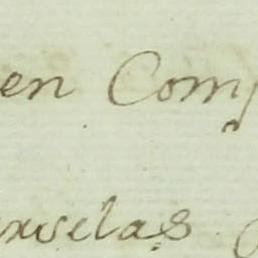 en Comp
exuelas